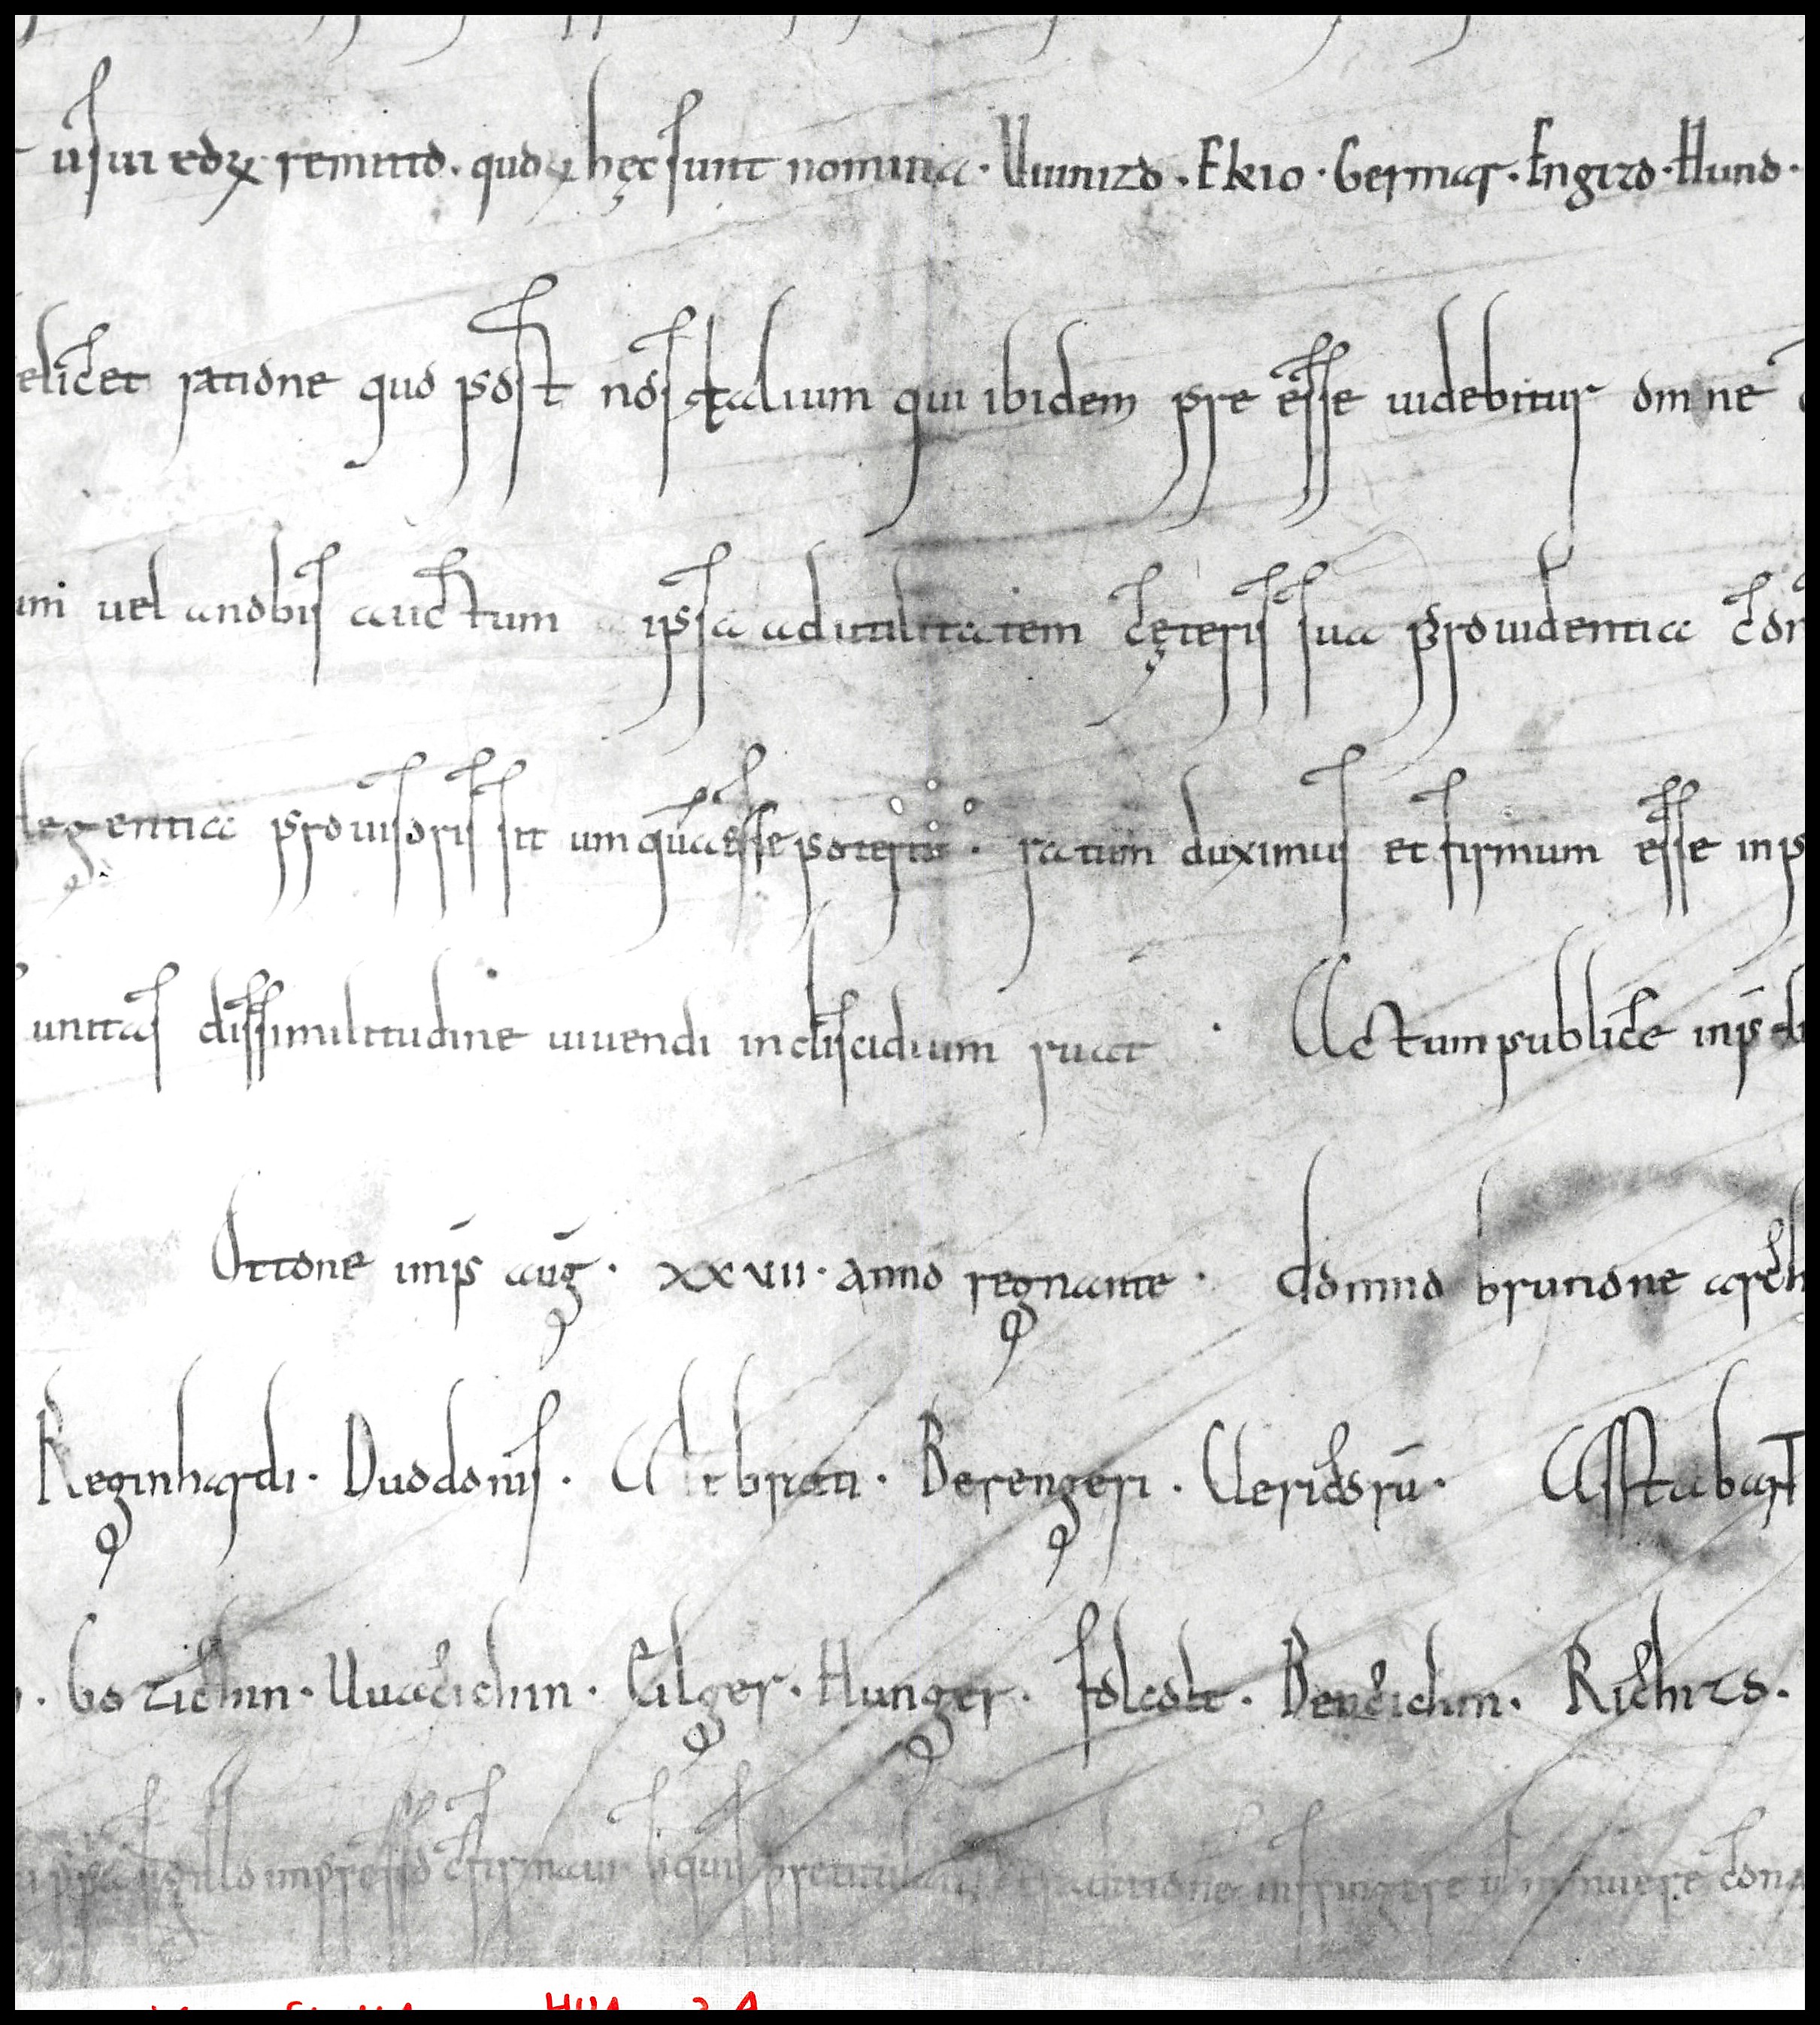 usui eorꝝ remitto. quorꝝ hęc sunt nomina · Uuinizo · Ekio · Germar · Engizo · Hund ·
elicet ratione quo post nos talium qui ibidem pre esse uidebitur omne
uni uel a nobis auctum ipsa ad utilitatem cęteris sua prouidentia con
legentia prouisoris sit umquā esse poterit · ratum duximus et firmum esse in
unitas dissimilitudine uiuendi in discidium ruat · Actum publice in
Ottone imp̄ auḡ · xxvii · anno regnante · domno brunone arch
Reginhardi · Duodonis · Altbrati · Berengeri · Clericorū · Asstabant
· Gozichin · Uuacichin · Eilger · Hunger · folcolt · Bencichin · Richizo ·
sigillo impresso cfirmaui infringere minuere cona